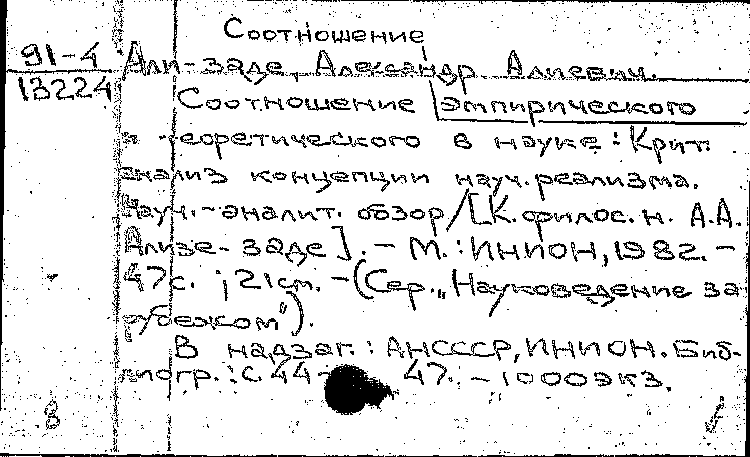 Соотношение
91-4 Али-заде, Александр Алиевич.
13224 Соотношение эмпирического
и теоретического в науке: Крит.
анализ концепции науч. реализма.
Науч.-аналит. обзор/[К. филос. н. А.А.
Ализе-заде]. - М.: ИНИОН, 1982. -
47с.; 21см. - (Сер. „Науковедение за
рубежом").
В надзаг.: АНСССР, ИНИОН. Биб-
лиогр.: с. 44-47. - 1000экз.